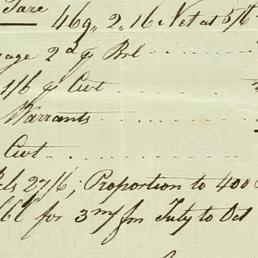 Tare 469,, 2,, 16 Net at 5/6
age 2d ⅌ Brl
1/6 ⅌ Cwt
Warrants
Cwt
ls 27/6; Proportion to 400
for 3m/ fm July to Oct